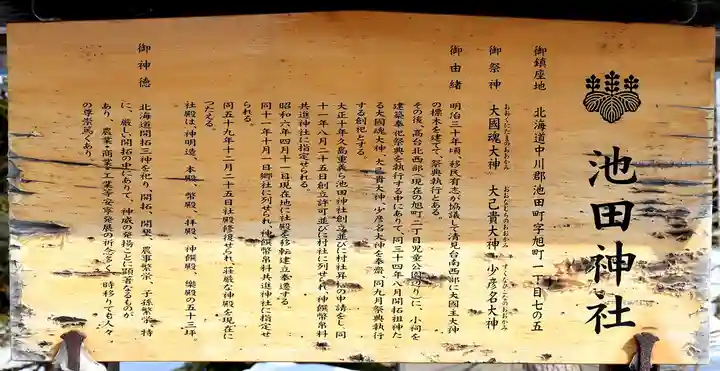 池田神社
御鎮座地 北海道中川郡池田町字旭町一丁目七の五
御祭神 大國魂大神 大己貴大神 少彦名大神
おおくにたまのおおかみ おおなむちのおおかみ すくなひこなのおおかみ
御由緒 明治三十年頃 移民有志が協議して清見台南西部に大國主大神
の標木を建てて、祭典執行とある。
その後、高台北西部(現在の旭町一丁目児童公園辺り)に、小祠を
建築奉祀祭典を執行する中にありて、同三十四年八月開拓祖神た
る大國魂大神、大己貴大神、少彦名大神を奉斎、同九月祭典執行
する創祀とする。
大正十年久島重義ら池田神社創立並びに村社昇格の申請をし、同
十一年八月二十五日創立許可並びに村社に列せられ、神饌幣帛料
共進神社に指定せられる。
昭和六年四月十一日現在地に社殿を移転建立奉遷する。
同十一年十月一日郷社に列せられ、神饌幣帛料共進神社に指定せ
られる。
同五十九年十二月二十五日社殿修復せられ、荘厳な神殿を現在に
つたえる。
社殿は、神明造、本殿、幣殿、拝殿、神饌殿、樂殿の五十三坪
御神徳 北海道開拓三神を祀り、開拓、開墾、農事繁栄、子孫繁栄、特
に、厳しい開拓の世にありて、神威の発揚ことに顕著なるものが
あり、農業・商業・工業等安寧発展の祈念多く、時移りても人々
の尊崇篤くあり。